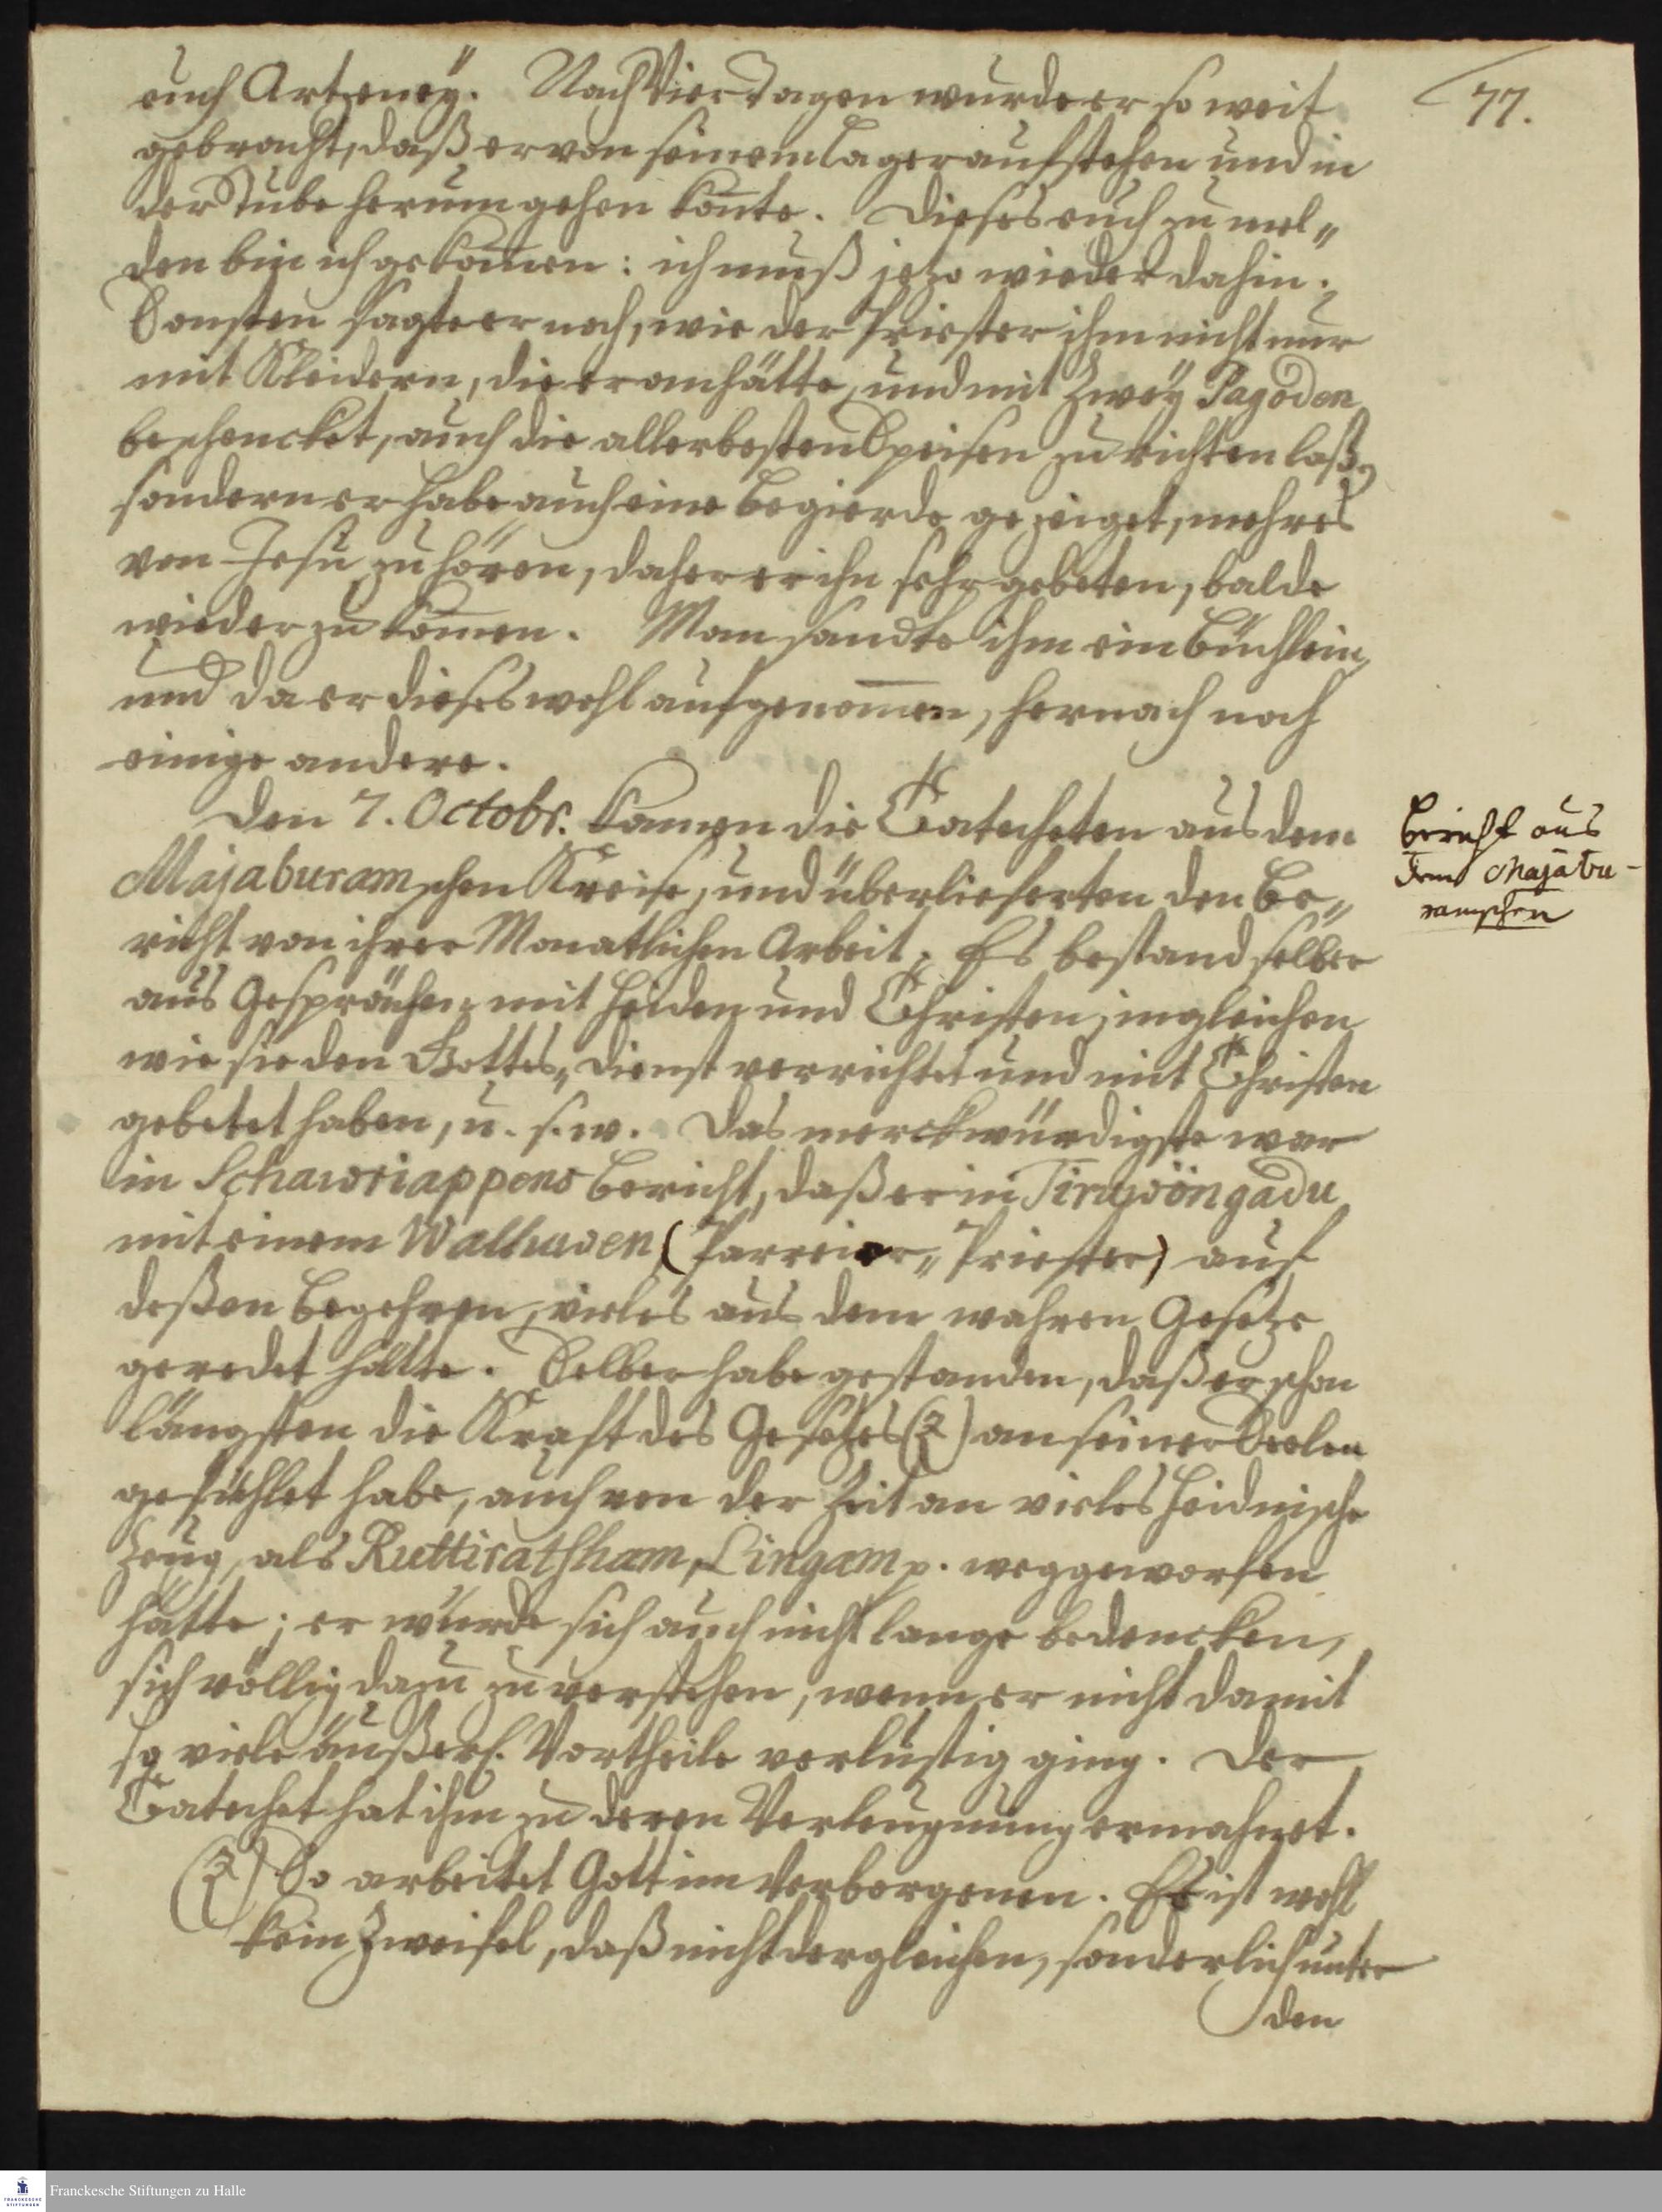 77.
auch Artzeneÿ. Nach Vier Tagen wurde er so weit
gebracht, daß er von seinem Lager aufstehen und in
der Stube herum gehen konte. Dieses euch zu mel„
den bin ich gekom̅en: ich muß jetzo wieder dahin.
Sonsten sagte er noch, wie der Priester ihm nicht nur
mit Kleidern, die er anhätte, und mit Zweÿ Pagoden
beschencket, auch die allerbesten Speisen zu richten laß
sondern er habe auch eine Begierde gezeiget, mehres
von Jesu zu hören, daher er ihn sehr gebeten, balde
wieder zu kom̅en. Man sandte ihm ein Büchlein,
und da er dieses wohl aufgenom̅en, hernach noch
einige andere.
Den 7. Octobr. kamen die Catecheten aus dem
Majaburamschen Kreise, und überlieferten den Be„
richt von ihrer Monatlichen Arbeit. Es bestand selber
aus Gesprächen mit Heiden und Christen, ingleichen
wie sie den Gottes„dienst verrichtet und mit Christen
gebetet haben, u. s. w. Das merckwürdigste war
in Schawriappens Bericht, daß er in Tiruwöngadu
mit einem Walluwen (Parreier„Priester) auf
deßen Begehren, vieles aus dem wahren Gesetze
geredet hätte. Selber habe gestanden, daß er schon
längsten die Kraft des Gesetzes (z) an seiner Seelen
gefühlet habe, auch von der Zeit an vieles Heidnische
Zeug, als Ruttiratsham, Lingam p. weggeworfen
hätte; er würde sich auch nicht lange bedencken,
sich völlig dazu zu verstehen, wenn er nicht damit
so viele äußerl. Vortheile verlustig ging. Der
Catechet hat ihm zu deren Verleugnung ermahnet.
(z) So arbeitet Gott im Verborgenen. Es ist wohl
kein Zweifel, daß nicht dergleichen, sonderlich unter
den
Bericht aus
dem Majabu-
ramschen
Franckesche Stiftungen zu Halle
FRANCKESCHE
STIFTUNGEN